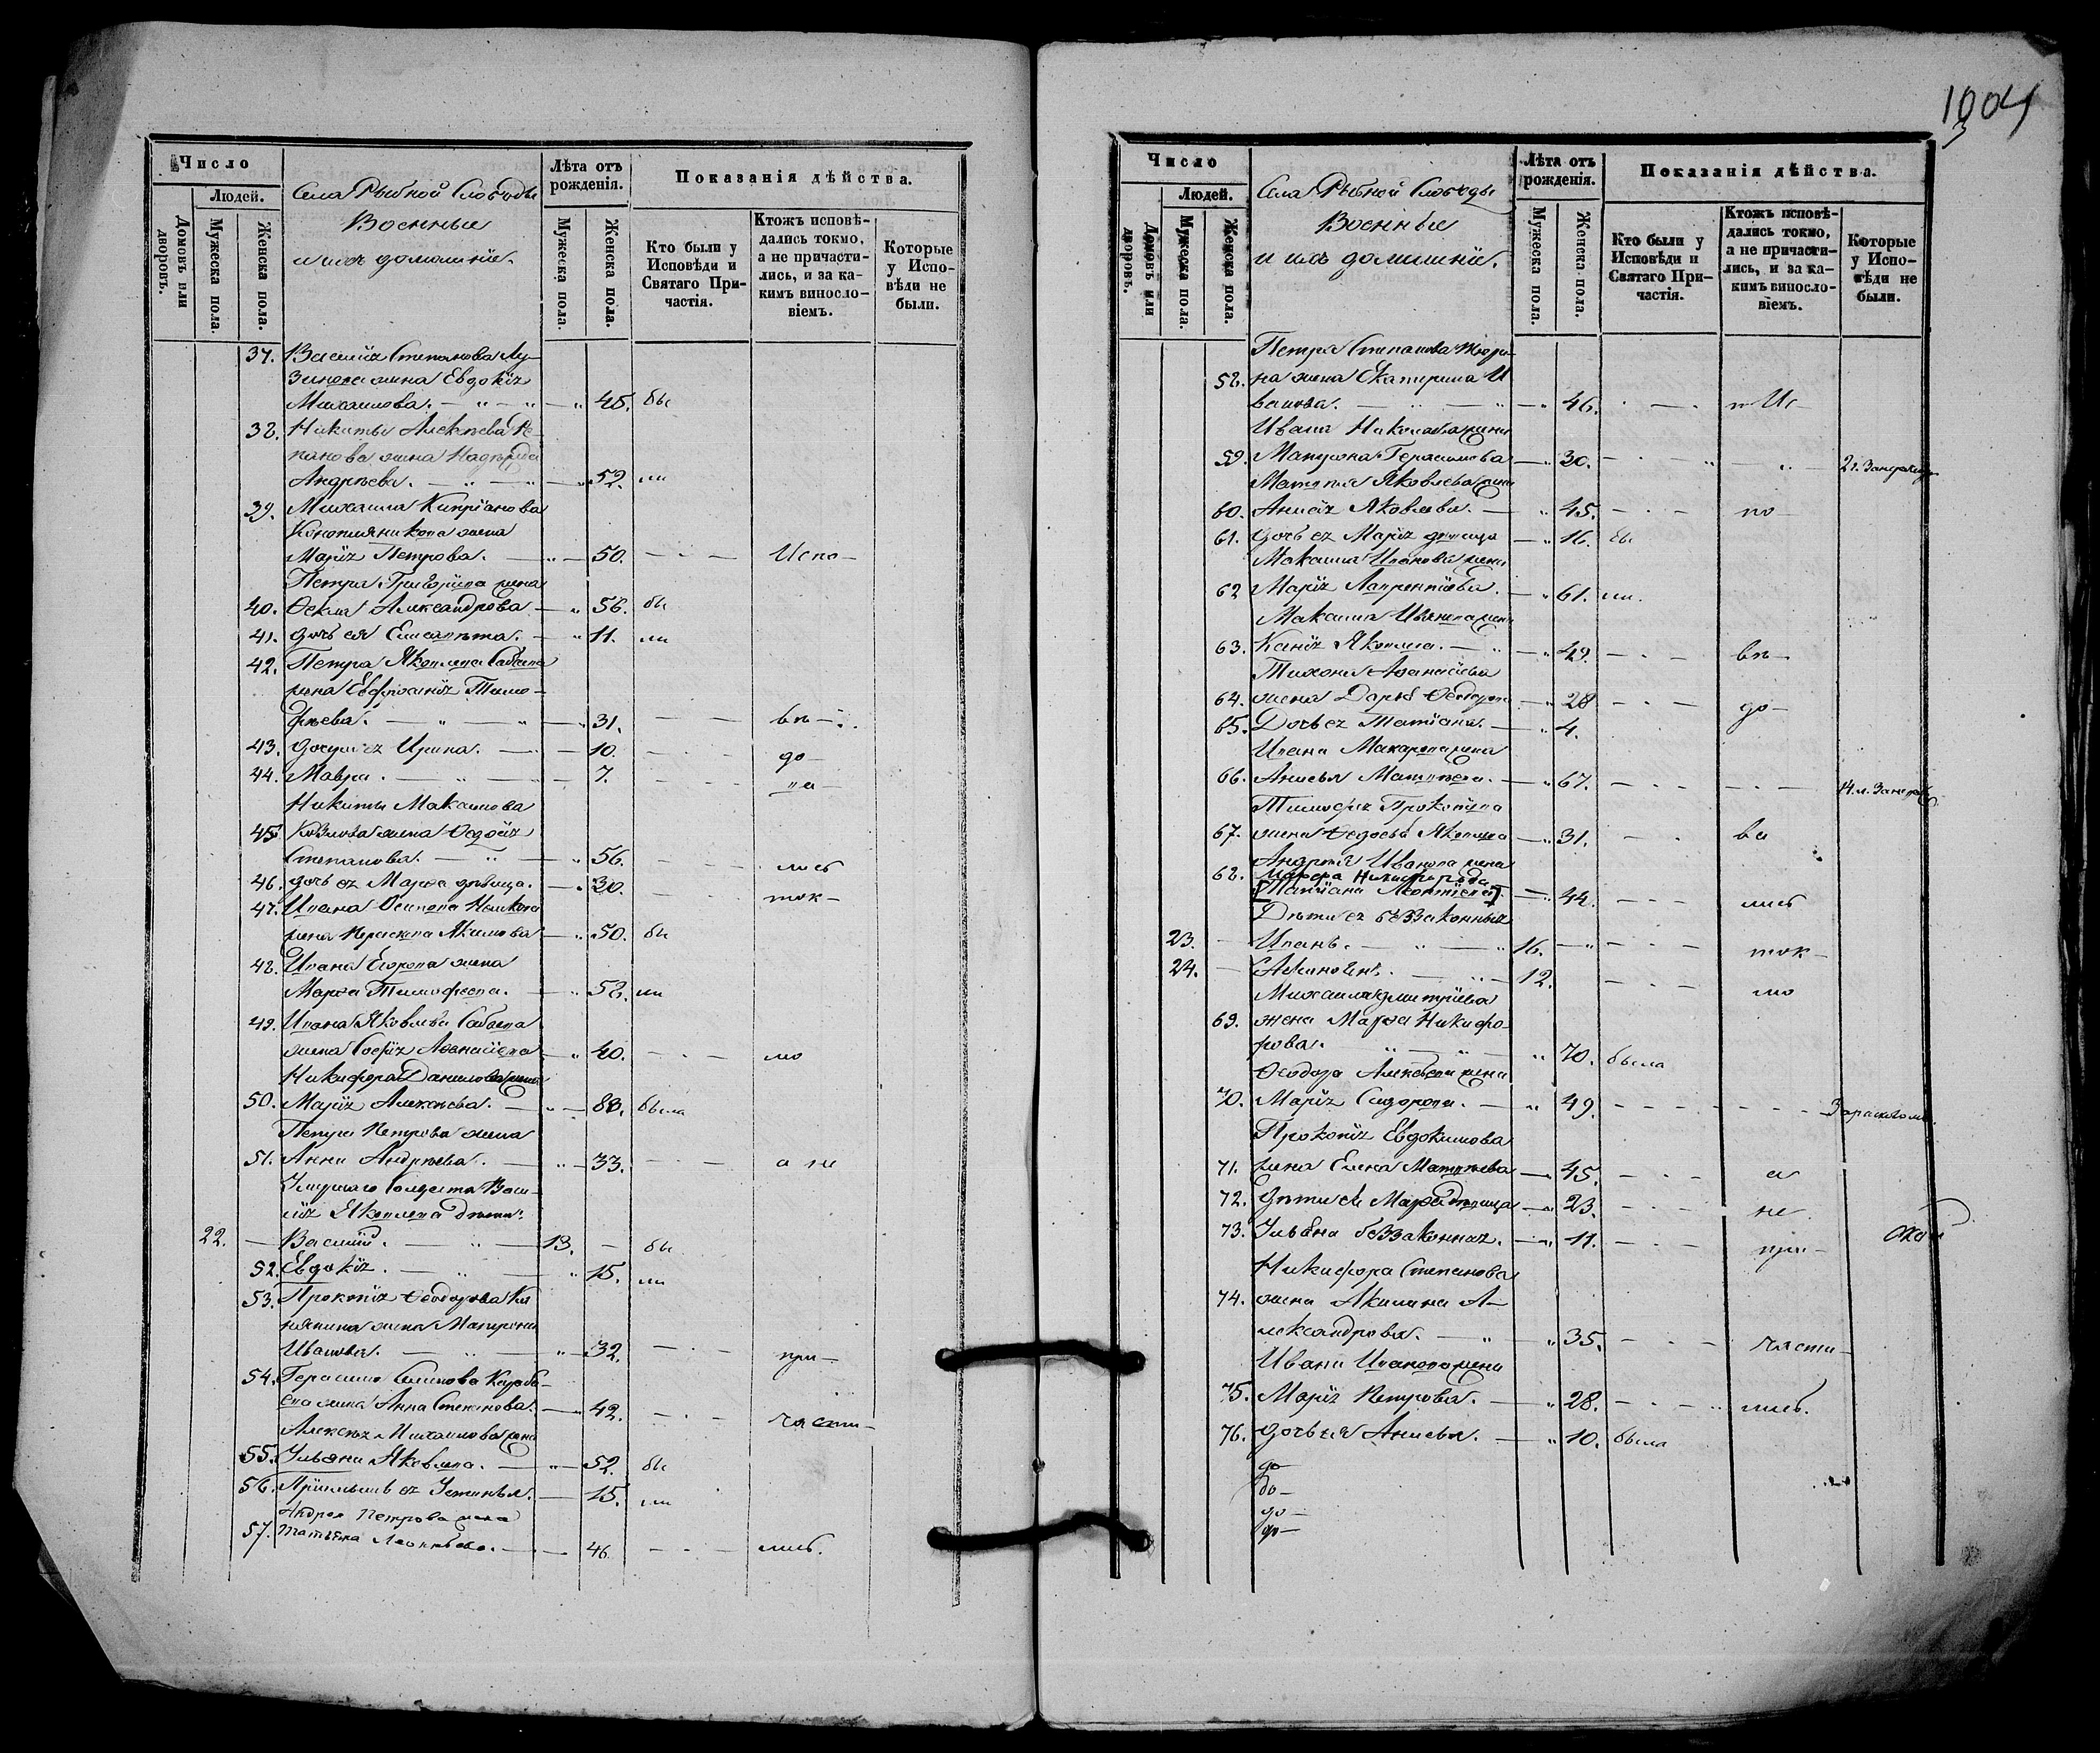 Число
Людей.
Домовъ или дворовъ.
Мужеска пола.
Женска пола.
Села Рыбной Слободы
Военные
и ихъ домашніе.
Лѣта отъ рожденія.
Мужеска пола.
Женска пола.
Показанія дѣйства.
Кто были у Исповѣди и Святаго При-частія.
Ктожъ исповѣ-дались токмо, а не причасти-лись, и за ка-кимъ винословіемъ.
Которые у Испо-вѣди не были.
37. Василія Степанова Лу-
зинова жена Евдокія
Михаилова. 45. бы
38. Никиты Алексѣева
жена Надежда
Андреева. 52. ли
39. Михаила Кипріанова
Конопляникова жена
Марія Петрова. 50. Испо-
Петра Григорьева жена
40. Ѳекла Александрова 56. бы
41. дочь ея Елисавета. 11. ли
42. Петра Яковлева Сабаева
жена Евфросинія Тимо-
фѣева. 31. вѣ-
43. дочери ея Ирина. 10. до-
44. Мавра. 7. ва-
Никиты Максимова
45. Козлова жена Ѳедосія
Степанова. 56. лись
46. дочь ея Марѳа дѣвица. 30. ток-
47. Ивана Осипова
жена Параскева Акимова 50. бы
48. Ивана Егорова жена
Марѳа Тимофеева. 58. ли
49. Ивана Яковлева Сабаева
жена Софія Аѳанасіева 40. мо
Никифора Данилова жена
50. Марія Алексѣева. 80. была
Петра Петрова жена
51. Анна Андреева. 33. а не
Умершаго Солдата Васи-
лія Яковлева дѣти:
22. Василій. 13. бы
52. Евдокія. 15. ли
53. Прокопія Ѳеодорова
жена Матрена
Иванова. 32. при-
54. Герасима Семенова Караба-
ева жена Анна Степанова. 42. части-
Алексѣя Михаилова жена
55. Ульяна Яковлева. 52. бы
56. Пріемышъ ея Устинья. 15. ли
Андрея Петрова жена
57. Татьяна Леонтьева. 46 лись.
1004
3
Число
Людей.
Домовъ или дворовъ.
Мужеска пола.
Женска пола.
Села Рыбной Слободы
Военные
и ихъ домашніе.
Лѣта отъ рожденія.
Мужеска пола.
Женска пола.
Показанія дѣйства.
Кто были у Исповѣди и Святаго При-частія.
Ктожъ исповѣ-дались токмо, а не причасти-лись, и за ка-кимъ винословіемъ.
Которые у Испо-вѣди не были.
Петра Степанова Тюри-
58. на жена Екатерина И
ванова. 46. Ис-
Ивана Николаева жена
59. Матрона Герасимова 30.
Матвея Яковлева жена
60. Анисія Яковлева. 45. по-
61. дочь ея Марія дѣвица 16. бы
Максима Иванова жена
62 Марія Лаврентіева. 61. ли.
Максима Иванова жена
63. Ксенія Яковлева. 49. вѣ-
Тихона Аѳанасіева
64. жена Дарья Ѳеодоро 28 до-
65. Дочь ея Татіана. 4.
Ивана Макарова жена
66. Анисья Матвѣева. 67.
Тимофея Прокопіева
67. жена Ѳедосья Яковлева 31. ва
Андрея Иванова жена
68. Марѳа Никифорова
[Татіана Леонтіева] 44. лись
Дѣти ея беззаконныя
23. Иванъ. 16. ток-
24. 12. мо
Михаила Дмитріева
69. жена Марѳа Никифо-
рова. 70. была
Ѳеодора Алексѣева жена
70. Марія Сидорова. 49. За расколом
Прокопія Евдокимова
71. жена Елена Матвѣева 45. а
72. Дѣти ея Марѳа дѣвица 23. не
73. Ульяна беззаконная. 11. при-
Никифора Степанова
74. жена Акилина А-
лександрова. 35. части-
Ивана Иванова жена
75. Марія Петрова. 28. лись.
76. дочь ея Анисья. 10. была
до-
до-
до-
до-